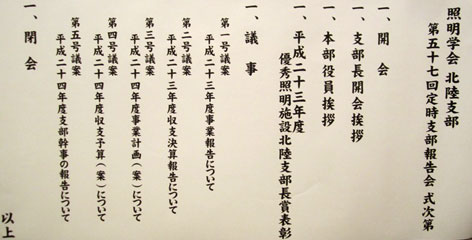 照明学会 北陸支部
第五十七回定時支部報告会 式次第
一、開会
一、支部長開会挨拶
一、本部役員挨拶
一、平成二十三年度
優秀照明施設北陸支部長賞表彰
一、議事
第一号議案
平成二十三年度事業報告について
第二号議案
平成二十三年度収支決算報告について
第三号議案
平成二十四年度事業計画（案）について
第四号議案
平成二十四年度収支予算（案）について
第五号議案
平成二十四年度支部幹事の報告について
一、閉会
以上